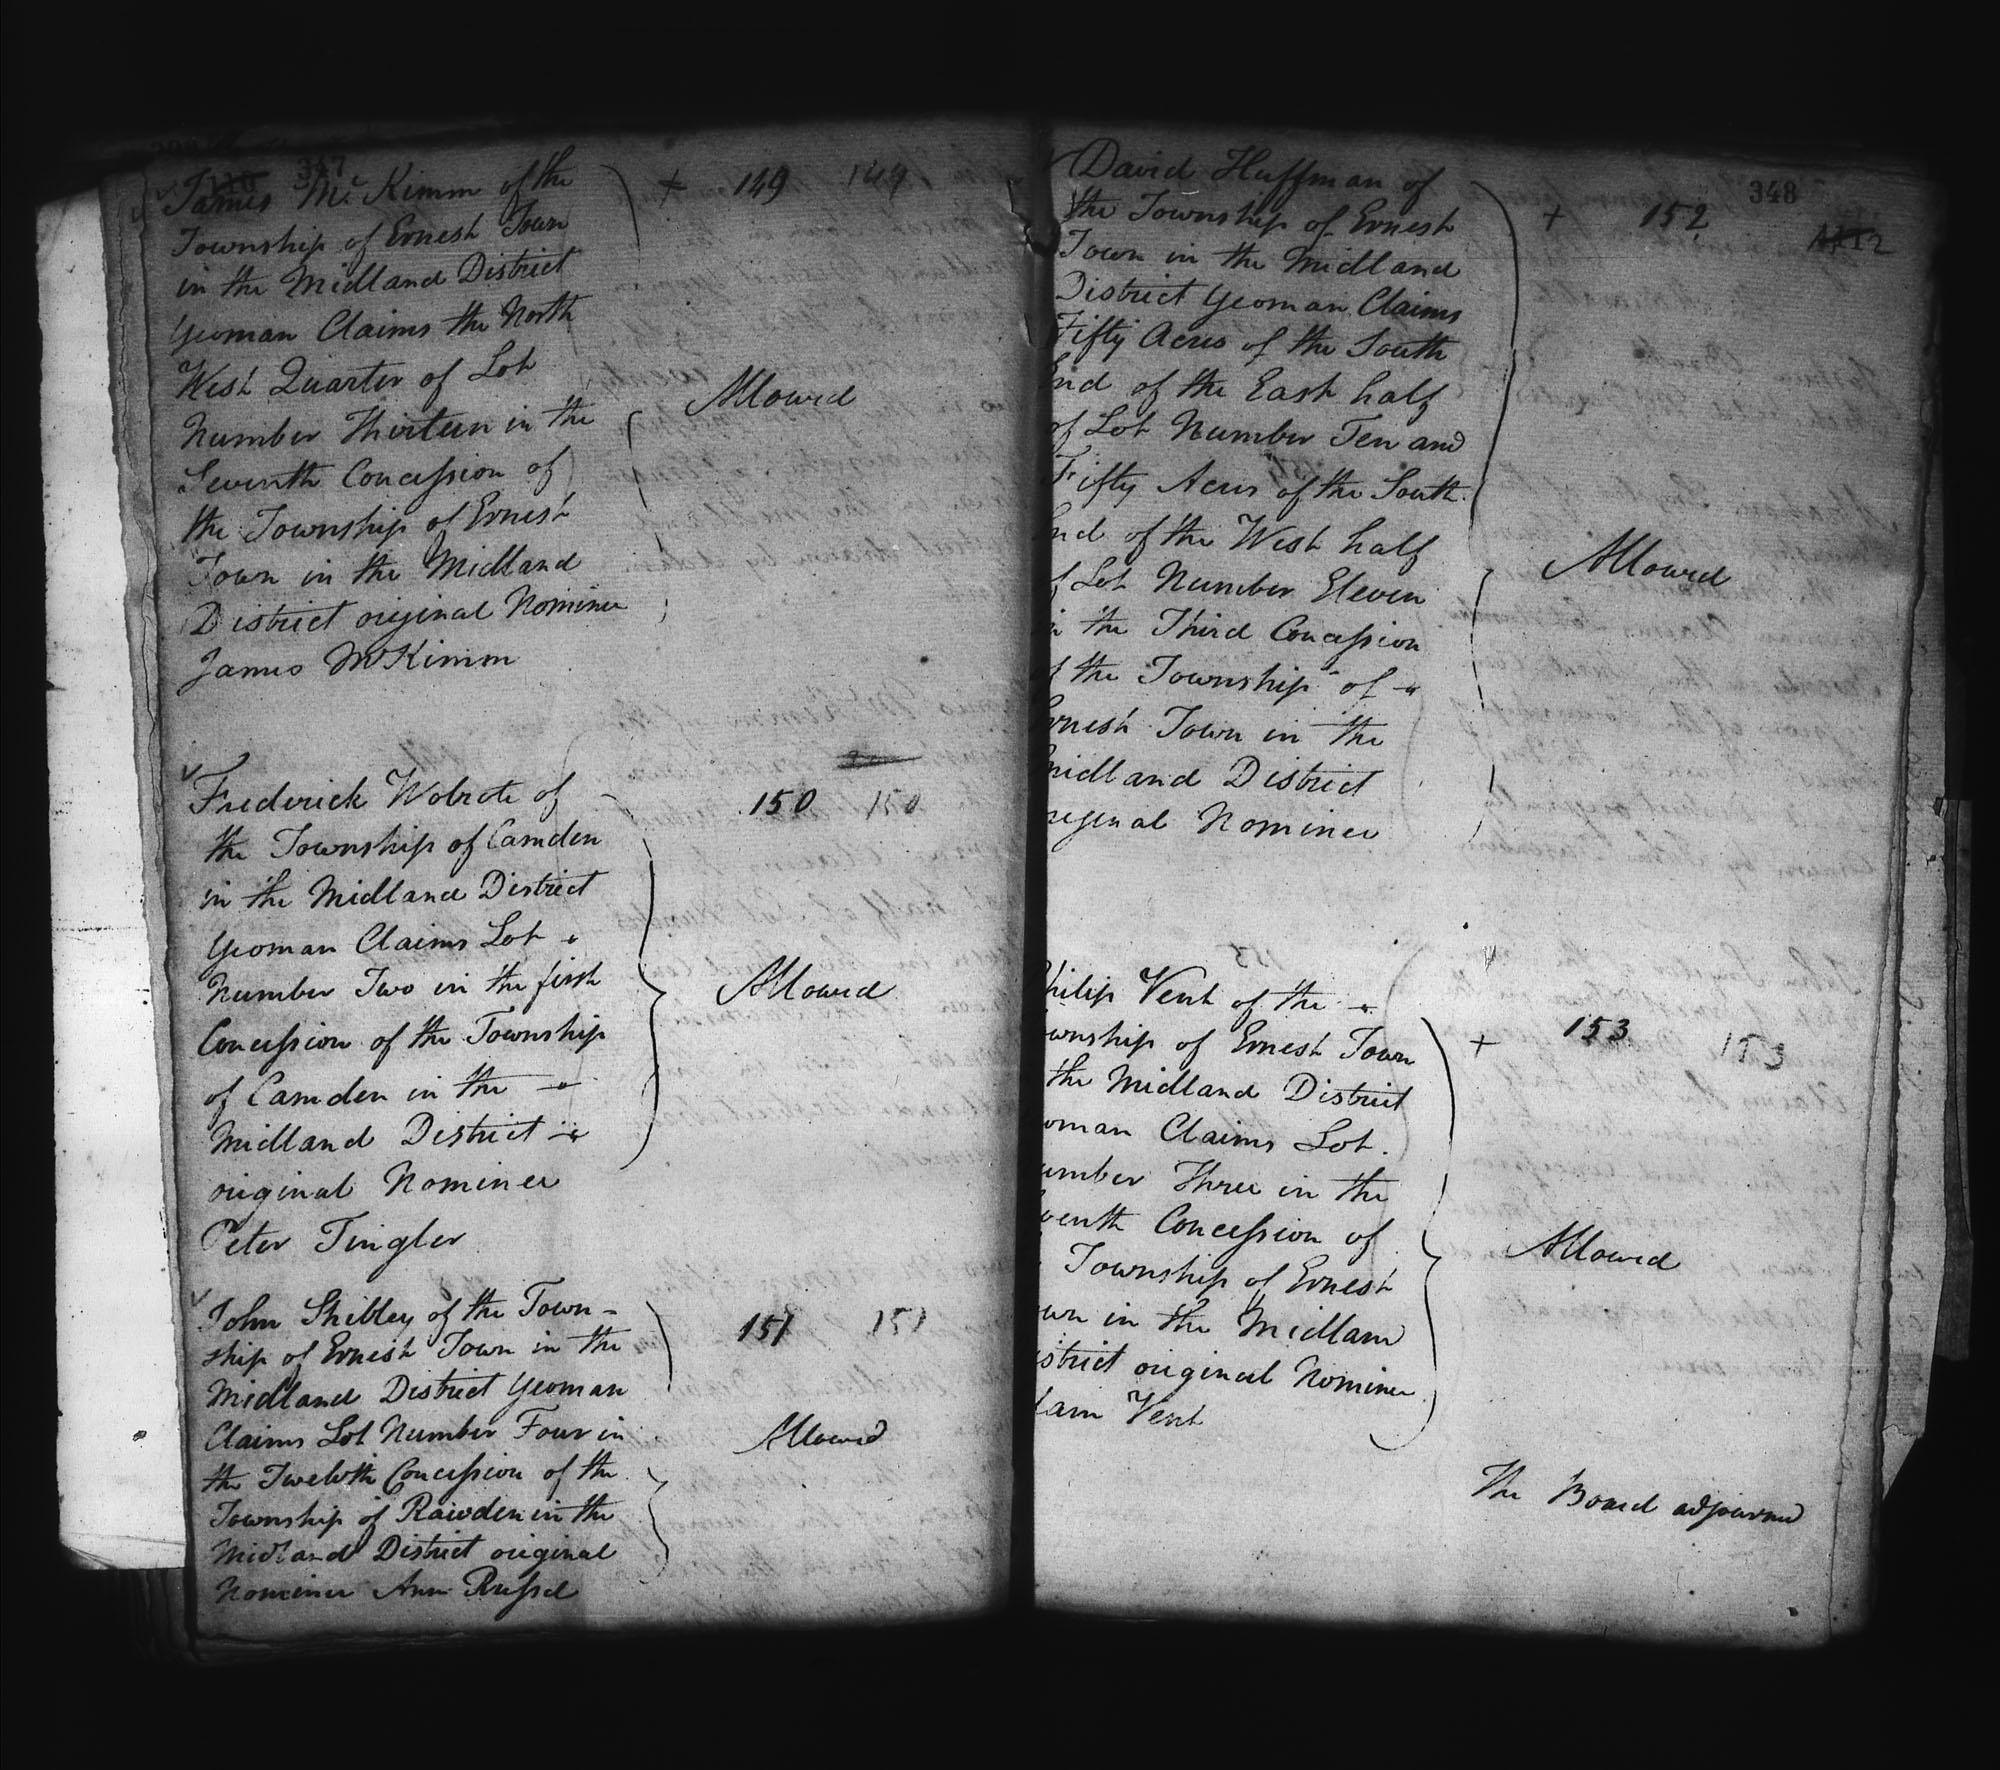 347
James Mc. Kimm of the
Township of Ernest Town
in the Midland District
Yeoman Claims the North
West Quarter of Lot
Number Thirteen in the
Seventh Concession of
the Township of Ernest
Town in the Midland
District original Nominee
James McKimm
+ 149 149
Allowed
Frederick Wolrote of
the Township of Camden
in the Midland District
Yeoman Claims Lot
Number Two in the first
Concession of the Township
of Camden in the
Midland District
original Nominee
Peter Tingler
150 150
Allowed
John Shibley of the Town-
ship of Ernest Town in the
Midland District Yeoman
Claims Lot Number Four in
the Twelvth Concession of the
Township of Rawden in the
Midland District original
Nominee Ann Russel
151 151
Allowed
348
David Huffman of
the Township of Ernest
Town in the Midland
District Yeoman Claims
Fifty Acres of the South
End of the East half
of Lot Number Ten and
Fifty Acres of the South
End of the West half
of Lot Number Eleven
in the Third Concession
of the Township of
Ernest Town in the
Midland District
riginal Nominee
+ 152
Allowed
Philip Vent of the
ownship of Ernest Town
the Midland District
oman Claims Lot
umber Three in the
venth Concession of
Township of Ernest
own in the Midland
istrict original Nominee
dam Vent
+ 153 153
Allowed
The Board adjourned